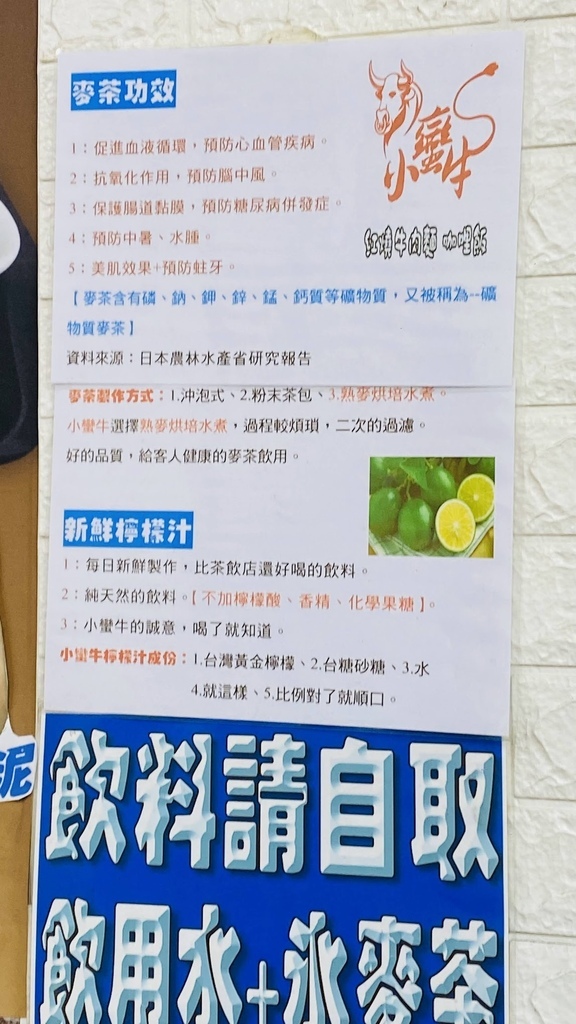 麥茶功效
小蠻牛
紅燒牛肉麵 咖哩飯
1：促進血液循環，預防心血管疾病。
2：抗氧化作用，預防腦中風。
3：保護腸道黏膜，預防糖尿病併發症。
4：預防中暑、水腫。
5：美肌效果+預防蛀牙。
【麥茶含有磷、鈉、鉀、鋅、錳、鈣質等礦物質，又被稱為--礦
物質麥茶】
資料來源：日本農林水產省研究報告
麥茶製作方式：1.沖泡式、2.粉末茶包、3.熟麥烘培水煮。
小蠻牛選擇熟麥烘培水煮，過程較煩瑣，二次的過濾。
好的品質，給客人健康的麥茶飲用。
新鮮檸檬汁
1：每日新鮮製作，比茶飲店還好喝的飲料。
2：純天然的飲料。【不加檸檬酸、香精、化學果糖】。
3：小蠻牛的誠意，喝了就知道。
小蠻牛檸檬汁成份：1.台灣黃金檸檬、2.台糖砂糖、3.水
4.就這樣、5.比例對了就順口。
泥
飲料請自取
飲用水+冰麥茶